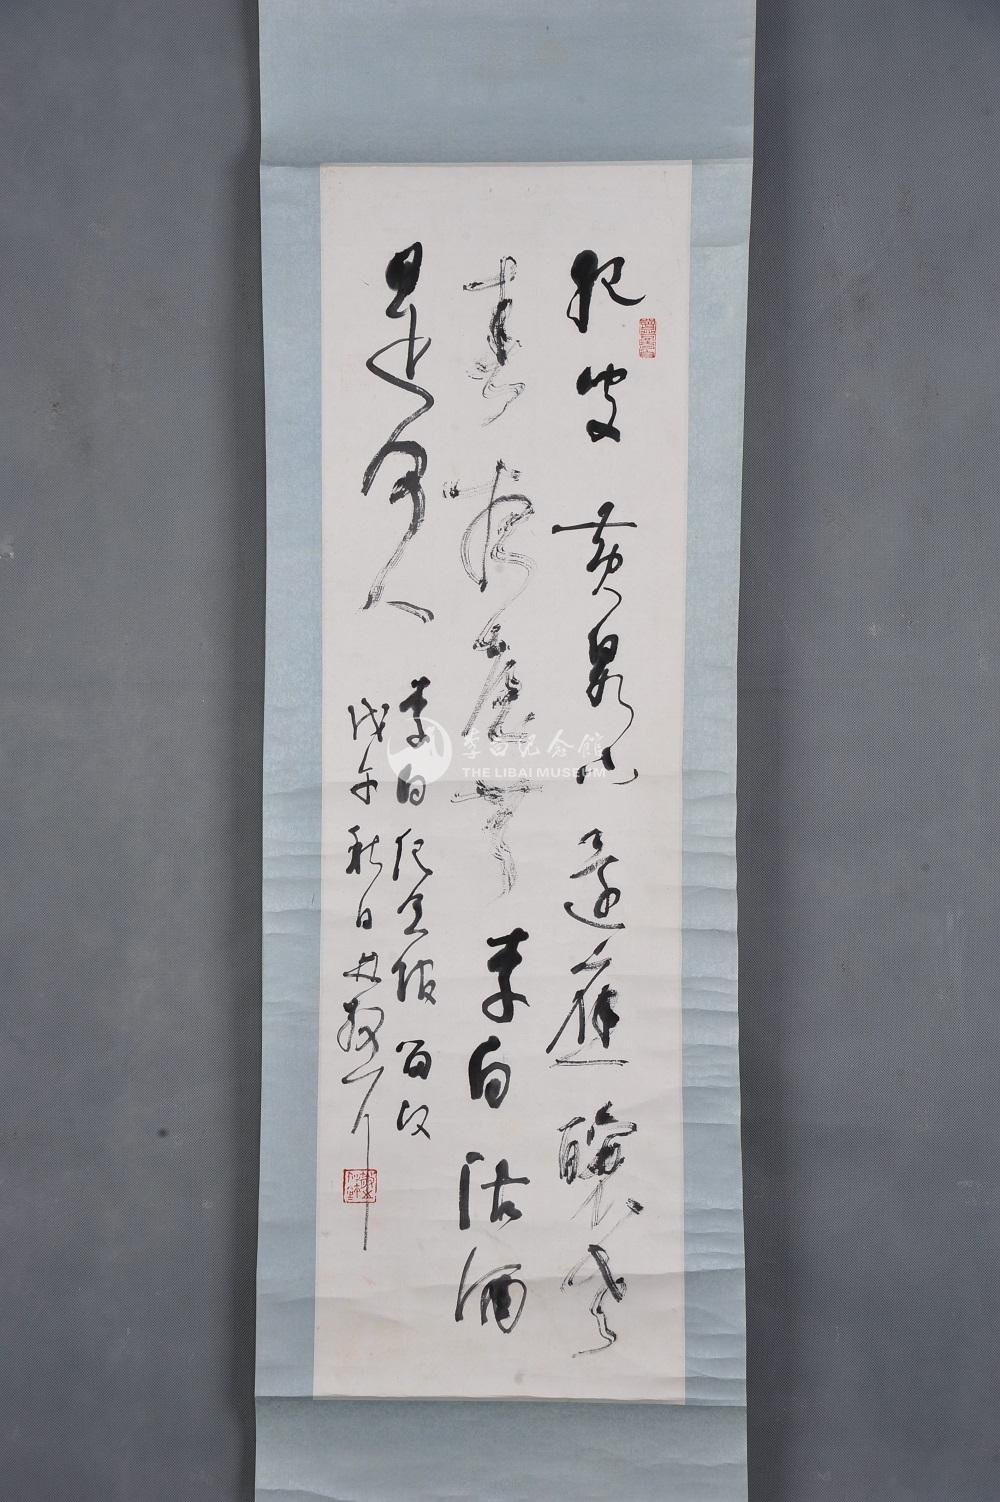 纪叟黄泉里还应酿老
春夜台无李白沽酒
是何人
李白纪宣城百纹
戊午秋日
李白纪念馆
THE LIBAI MUSEUM